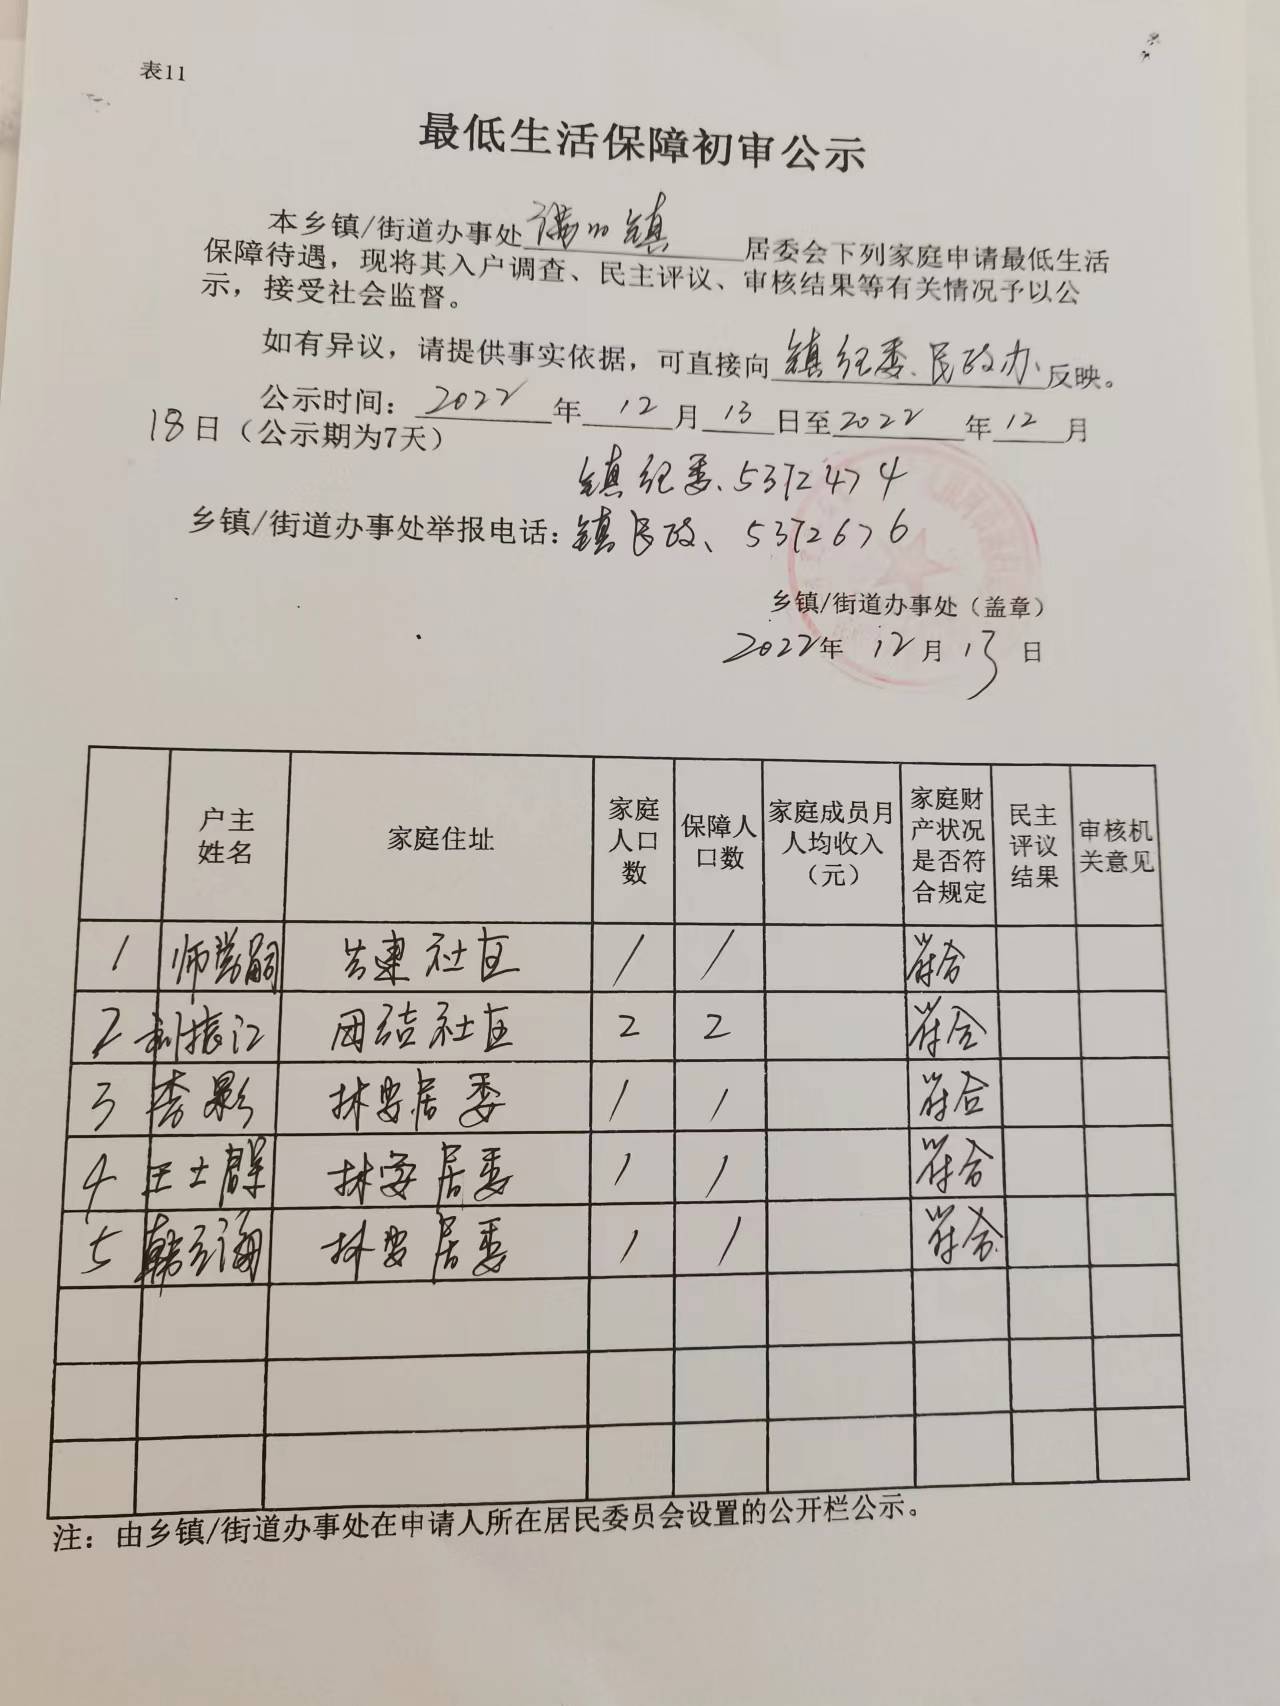 表11
最低生活保障初审公示
本乡镇/街道办事处 镇 居委会下列家庭申请最低生活
保障待遇，现将其入户调查、民主评议、审核结果等有关情况予以公
示，接受社会监督。
如有异议，请提供事实依据，可直接向镇纪委、民政办反映。
公示时间：2022年12月13日至2022年12月
18日（公示期为7天）
镇纪委、5392474
乡镇/街道办事处举报电话：镇民政、5392676
乡镇/街道办事处（盖章）
2022年12月13日
户主姓名 家庭住址 家庭人口数 保障人口数 家庭成员月人均收入（元） 家庭财产状况是否符合规定 民主评议结果 审核机关意见
1 共建社区 1 1 符合
2 刘振江 团结社区 2 2 符合
3 李影 林安居委 1 1 符合
4 王士群 林安居委 1 1 符合
5 韩立海 林安居委 1 1 符合
注：由乡镇/街道办事处在申请人所在居民委员会设置的公开栏公示。